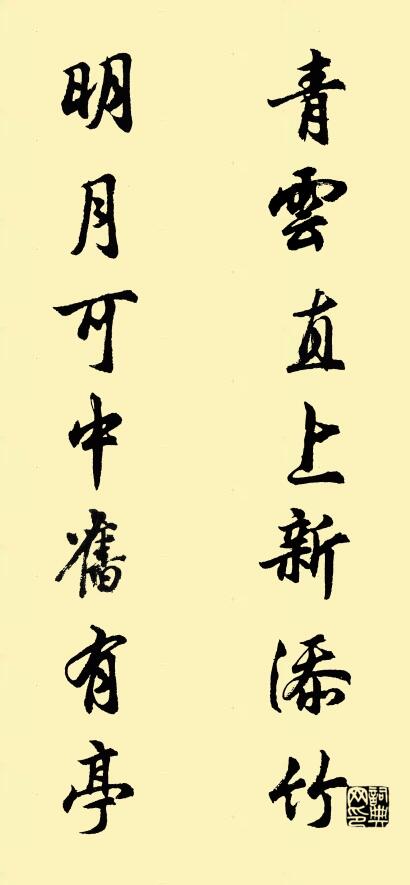 青雲直上新添竹
明月可中舊有亭
詞典
网印